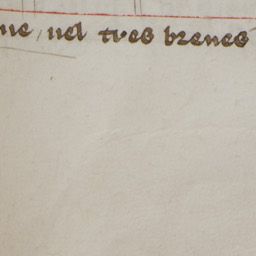 ue, uel tres breues